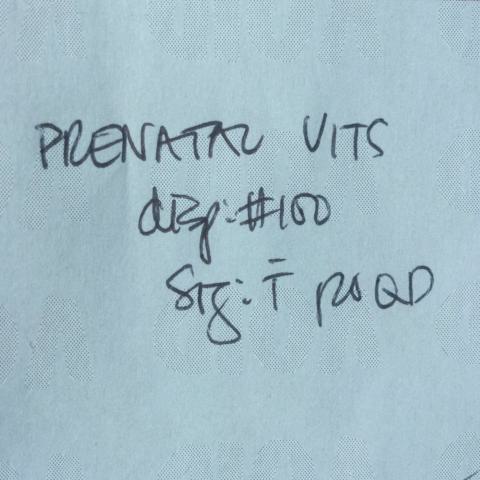 PRENATAL VITS
disp: #100
Sig: T̄ po QD